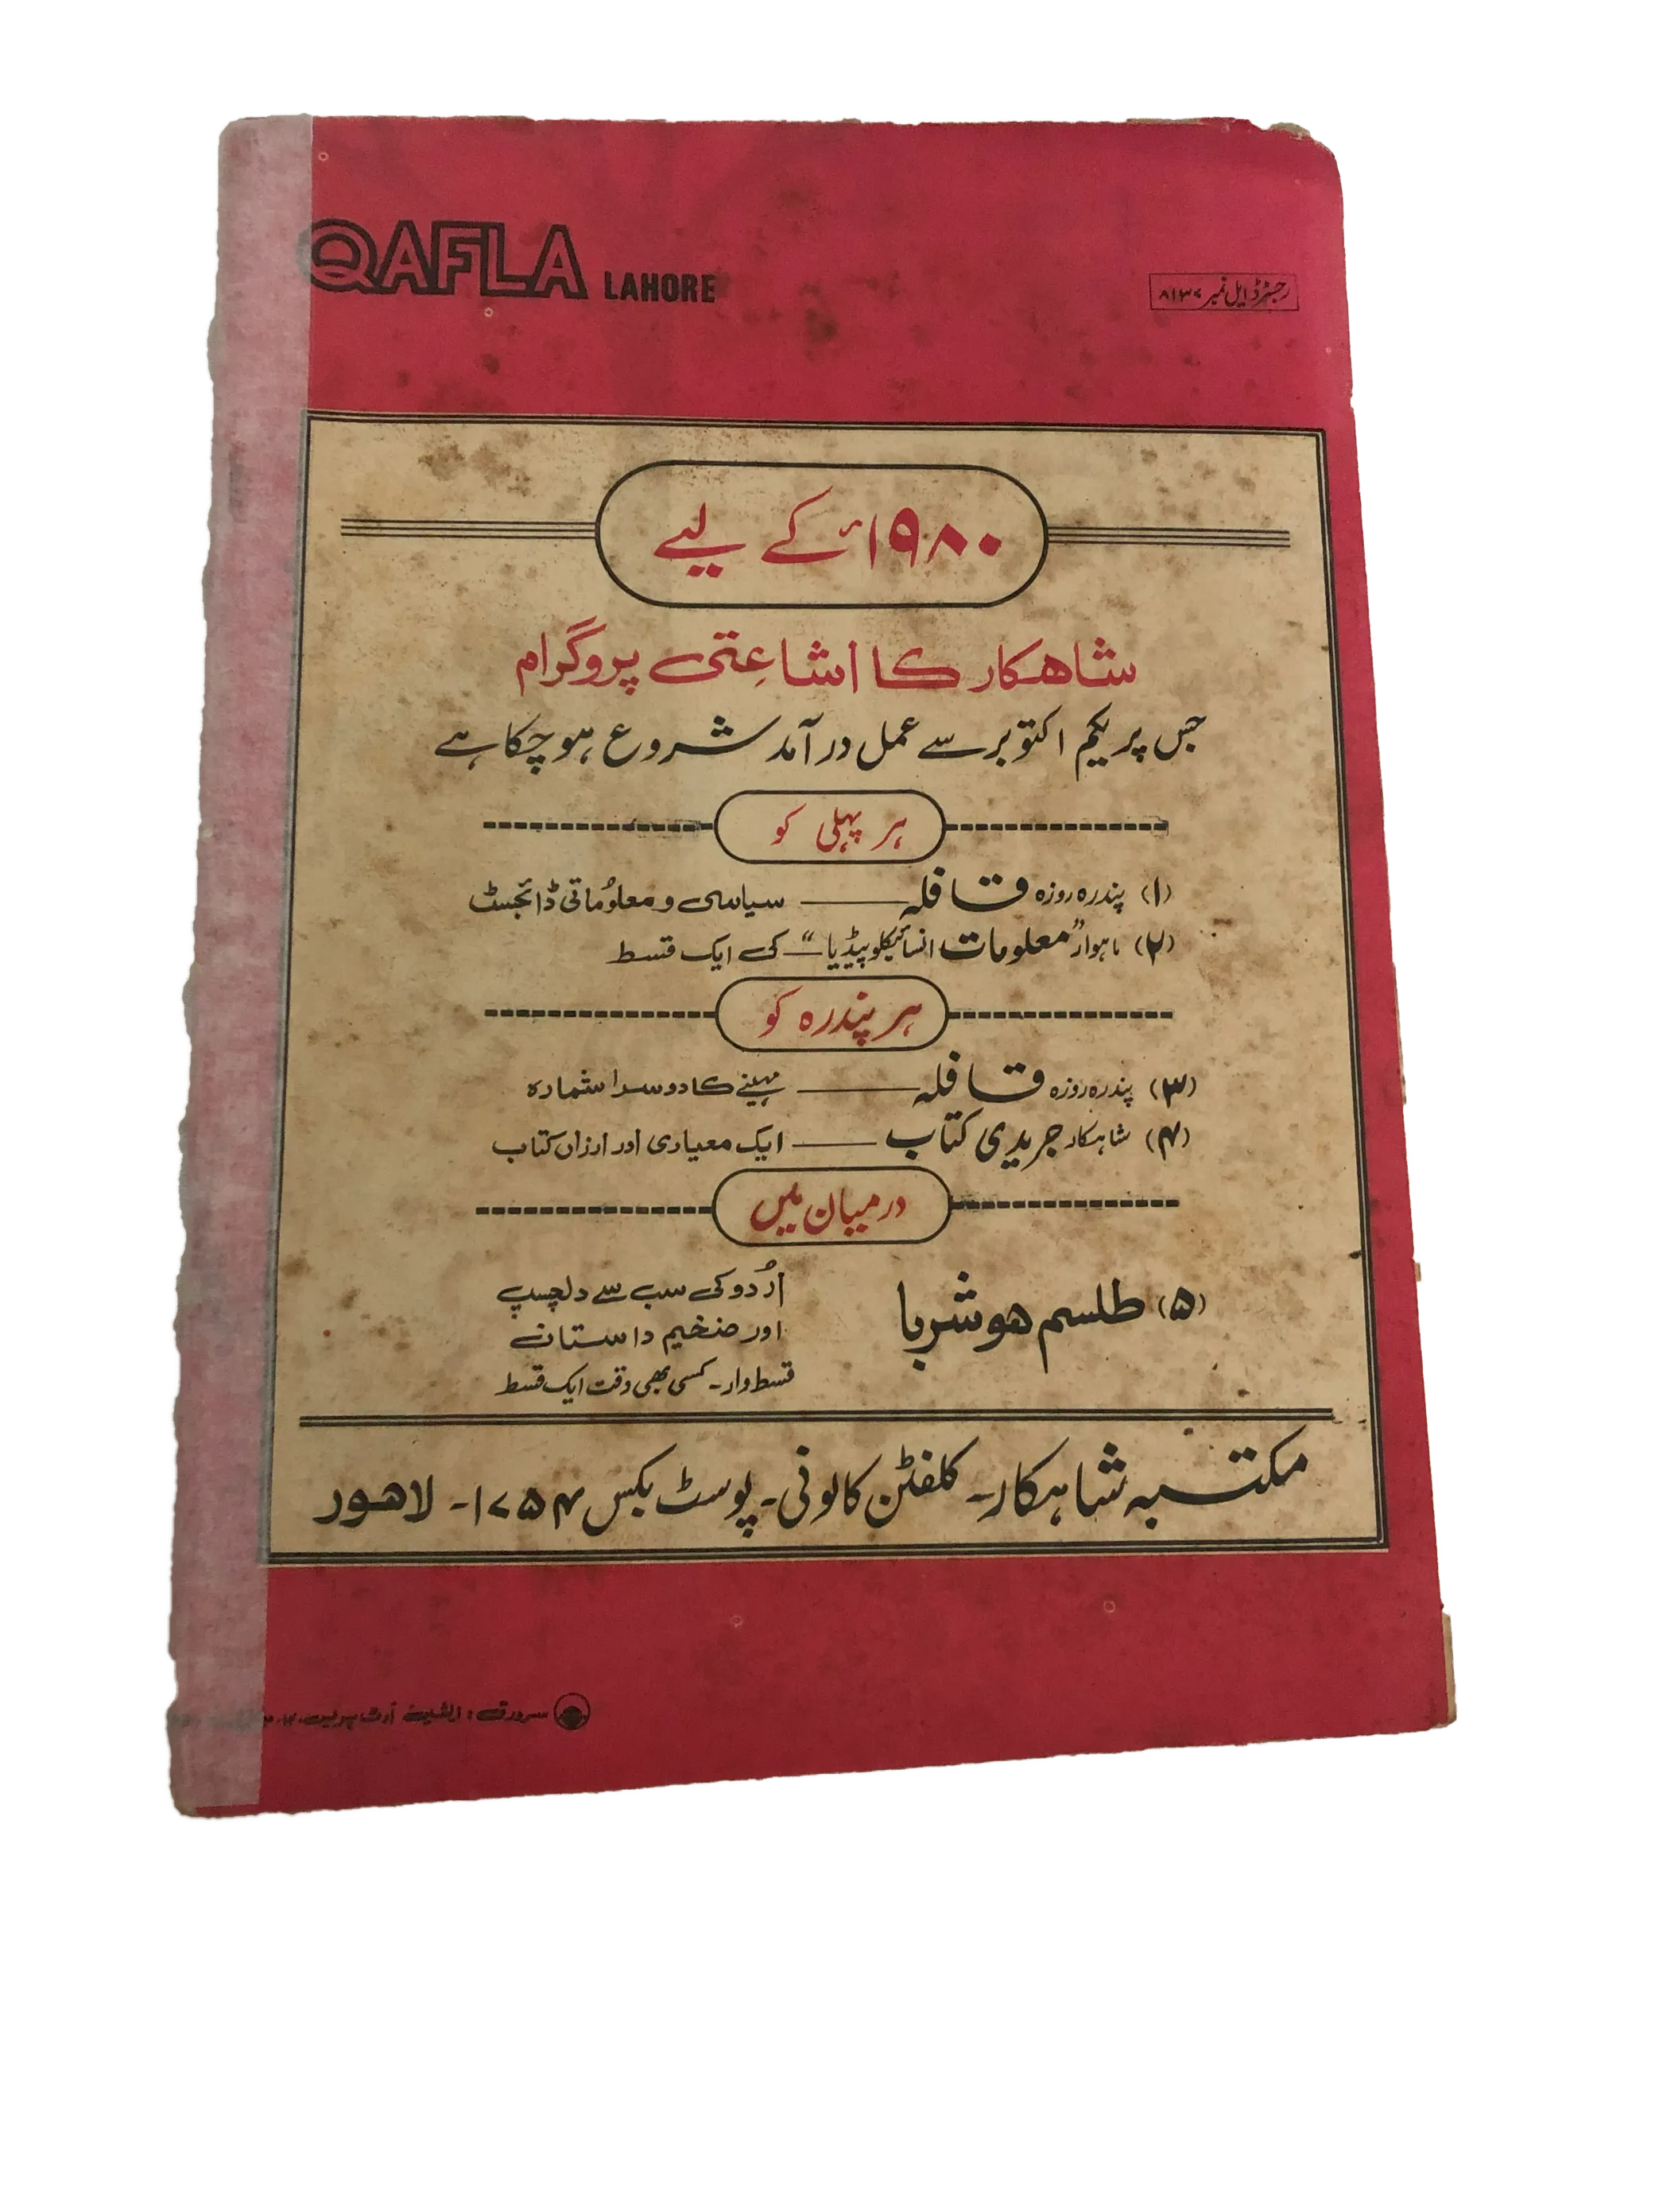 QAFLA LAHORE
رجسٹرڈ ایل نمبر ۸۱۳۷
۱۹۸۰ء کے لیے
شاہکار کا اشاعتی پروگرام
جس پر یکم اکتوبر سے عمل درآمد شروع ہو چکا ہے
ہر پہلی کو
(۱) پندرہ روزہ قافلہ — سیاسی و معلوُماتی ڈائجسٹ
(۲) ماہوار "معلومات انسائیکلوپیڈیا" — کی ایک قسط
ہر پندرہ کو
(۳) پندرہ روزہ قافلہ — مہینے کا دوسرا شمارہ
(۴) شاہکار جریدی کتاب — ایک معیاری اور ارزاں کتاب
درمیان میں
(۵) طلسم ہوشربا
اُردو کی سب سے دلچسپ
اور ضخیم داستان
قسط وار۔ کسی بھی وقت ایک قسط
مکتبہ شاہکار۔ کلفٹن کالونی۔ پوسٹ بکس ۱۷۵۴۔ لاہور
سرورق: آرٹ پریس